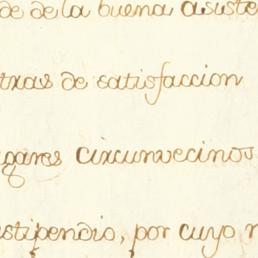 de de la buena asiste
tras de satisfaccion
gares circunvecinos
stipendio, por cuyo